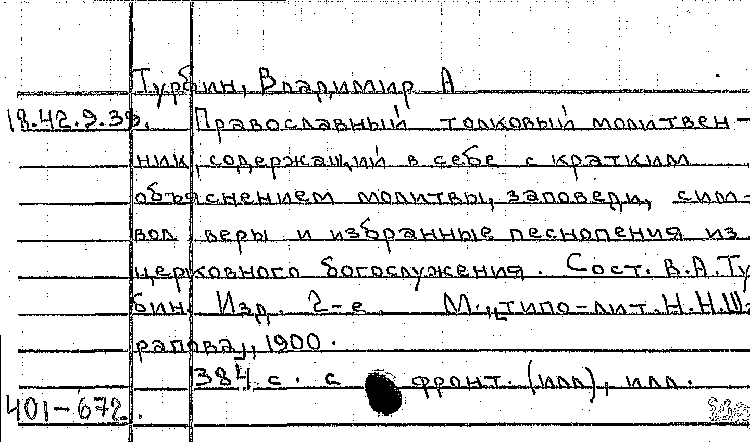 Турбин, Владимир А
18.42.9.39. Православный толковый молитвен-
ник, содержащий в себе с кратким
объяснением молитвы, заповеди, сим-
вол веры и избранные песнопения из
церковного богослужения. Сост. В.А.Ту
бин. Изд. 2-е. М., "типо-лит. Н.Н.Ша
рапова", 1900.
384 с. с фронт. (илл), илл.
401-672.